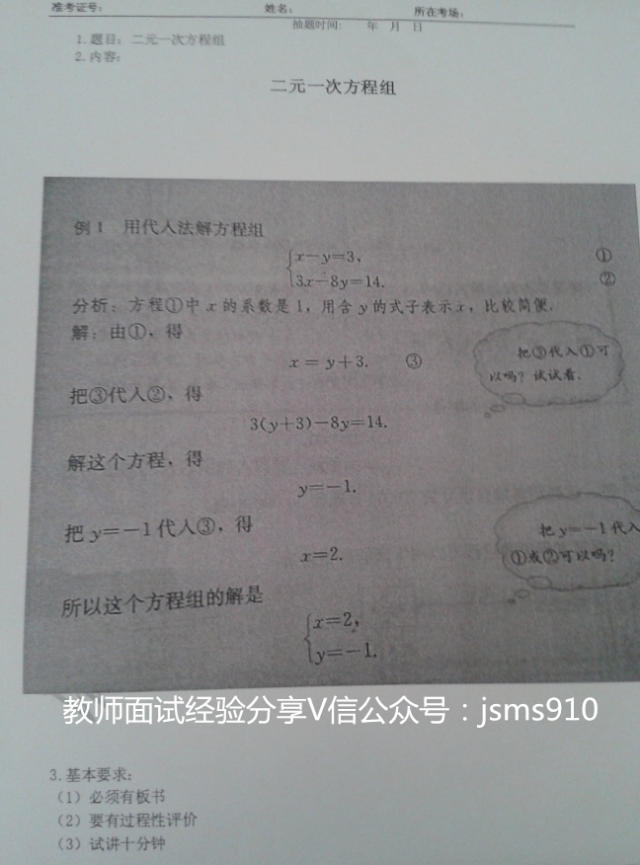 准考证号: 姓名: 所在考场:
抽题时间: 年 月 日
1.题目: 二元一次方程组
2.内容:
二元一次方程组
例1 用代入法解方程组
x-y=3, ①
3x-8y=14. ②
分析:方程①中x的系数是1,用含y的式子表示x,比较简便.
解:由①,得
x=y+3. ③
把③代入①可
以吗?试试看.
把③代入②,得
3(y+3)-8y=14.
解这个方程,得
y=-1.
把y=-1代入③,得
把y=-1代入
①或②可以吗?
x=2.
所以这个方程组的解是
x=2,
y=-1.
教师面试经验分享V信公众号:jsms910
3.基本要求:
(1)必须有板书
(2)要有过程性评价
(3)试讲十分钟